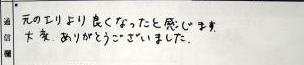 通信欄
元のエリより良くなったと感じます.
大変.ありがとうございました.